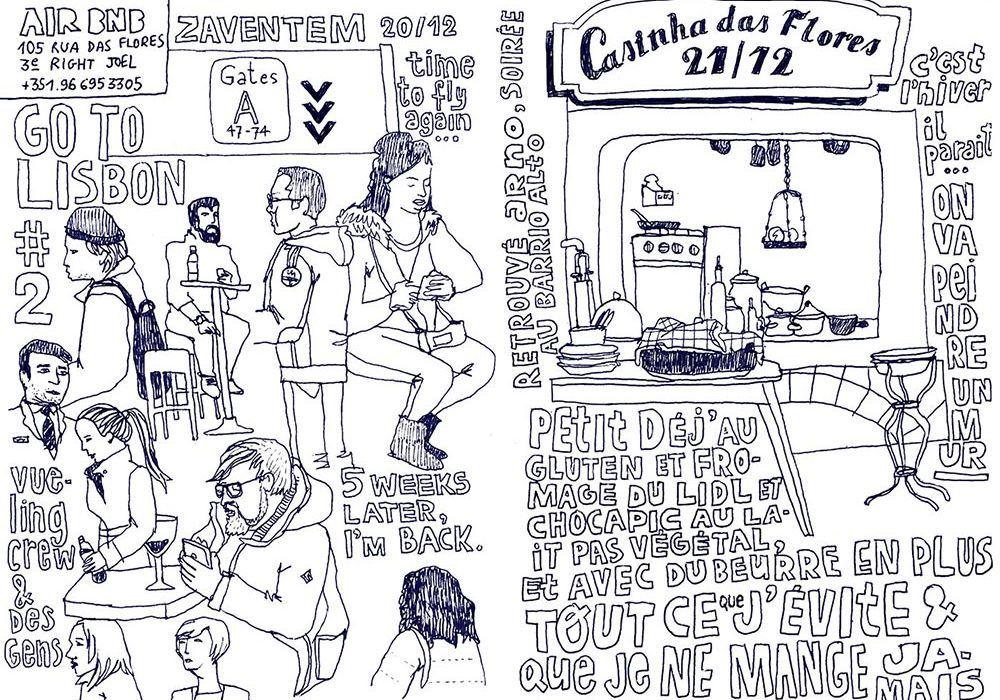 AIR BNB
105 RUA DAS FLORES
3º RIGHT JOËL
+351.96 695 3305
ZAVENTEM 20/12
Gates
A
47-74
time
to fly
again
...
GO TO
LISBON
#
2
vue-
ling
crew
&
des
gens
5 WEEKS
LATER,
I'M BACK.
RETROUVÉ arno, SOIRÉE
AU BARRIO ALTO
Casinha das Flores
21/12
c'est
l'hiver
il
paraît
...
ON
VA
PEI
ND
RE
UN
M
UR
PETIT DÉJ' AU
GLUTEN ET FRO-
MAGE DU LIDL ET
CHOCAPIC AU LA-
IT PAS VÉGÉTAL,
ET AVEC DU BEURRE EN PLUS
TOUT CE que J'ÉVITE &
que Je NE MANGE JA-
MAIS